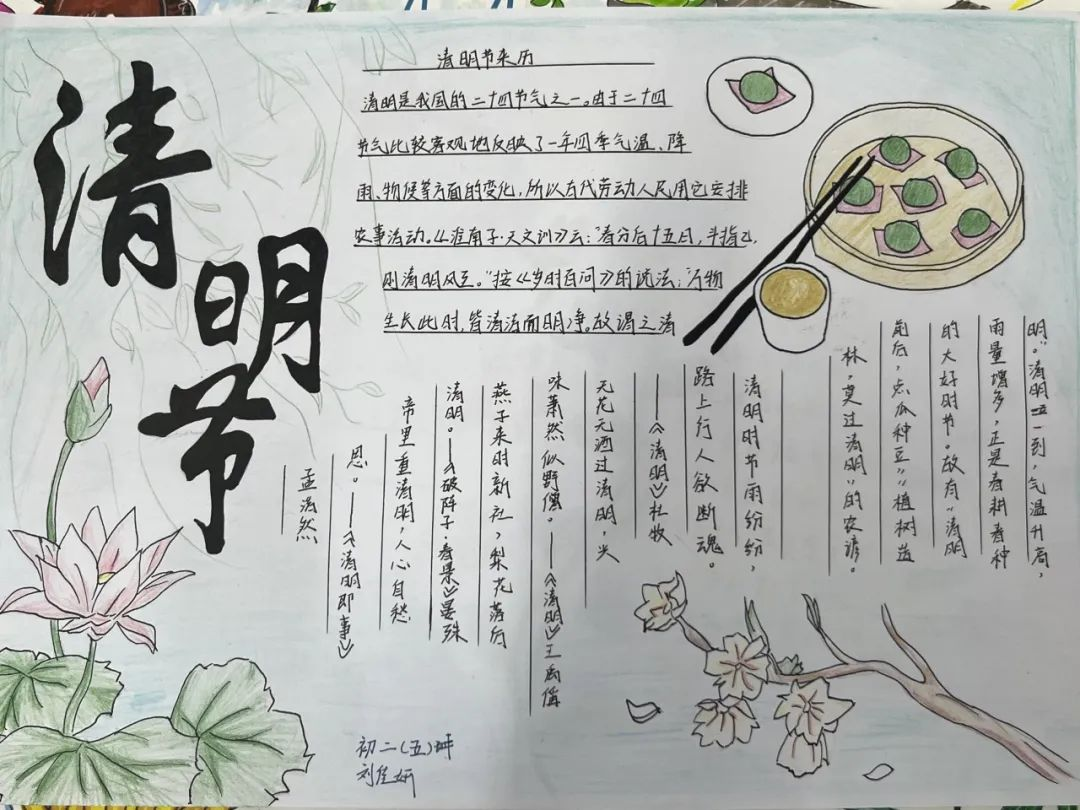 清明节
清明节来历
清明是我国的二十四节气之一。由于二十四
节气比较客观地反映了一年四季气温、降
雨、物候等方面的变化，所以古代劳动人民用它安排
农事活动。《淮南子·天文训》云：“春分后十五日，斗指乙，
则清明风至。”按《岁时百问》的说法：“万物
生长此时，皆清洁而明净。故谓之清
明。”清明一到，气温升高，
雨量增多，正是春耕春种
的大好时节。故有“清明
前后，点瓜种豆”“植树造
林，莫过清明”的农谚。
清明时节雨纷纷，
路上行人欲断魂。
——《清明》杜牧
无花无酒过清明，兴
味萧然似野僧。——《清明》王禹偁
燕子来时新社，梨花落后
清明。——《破阵子·春景》晏殊
帝里重清明，人心自愁
思。——《清明即事》
孟浩然
初二（五）班
刘佳妍